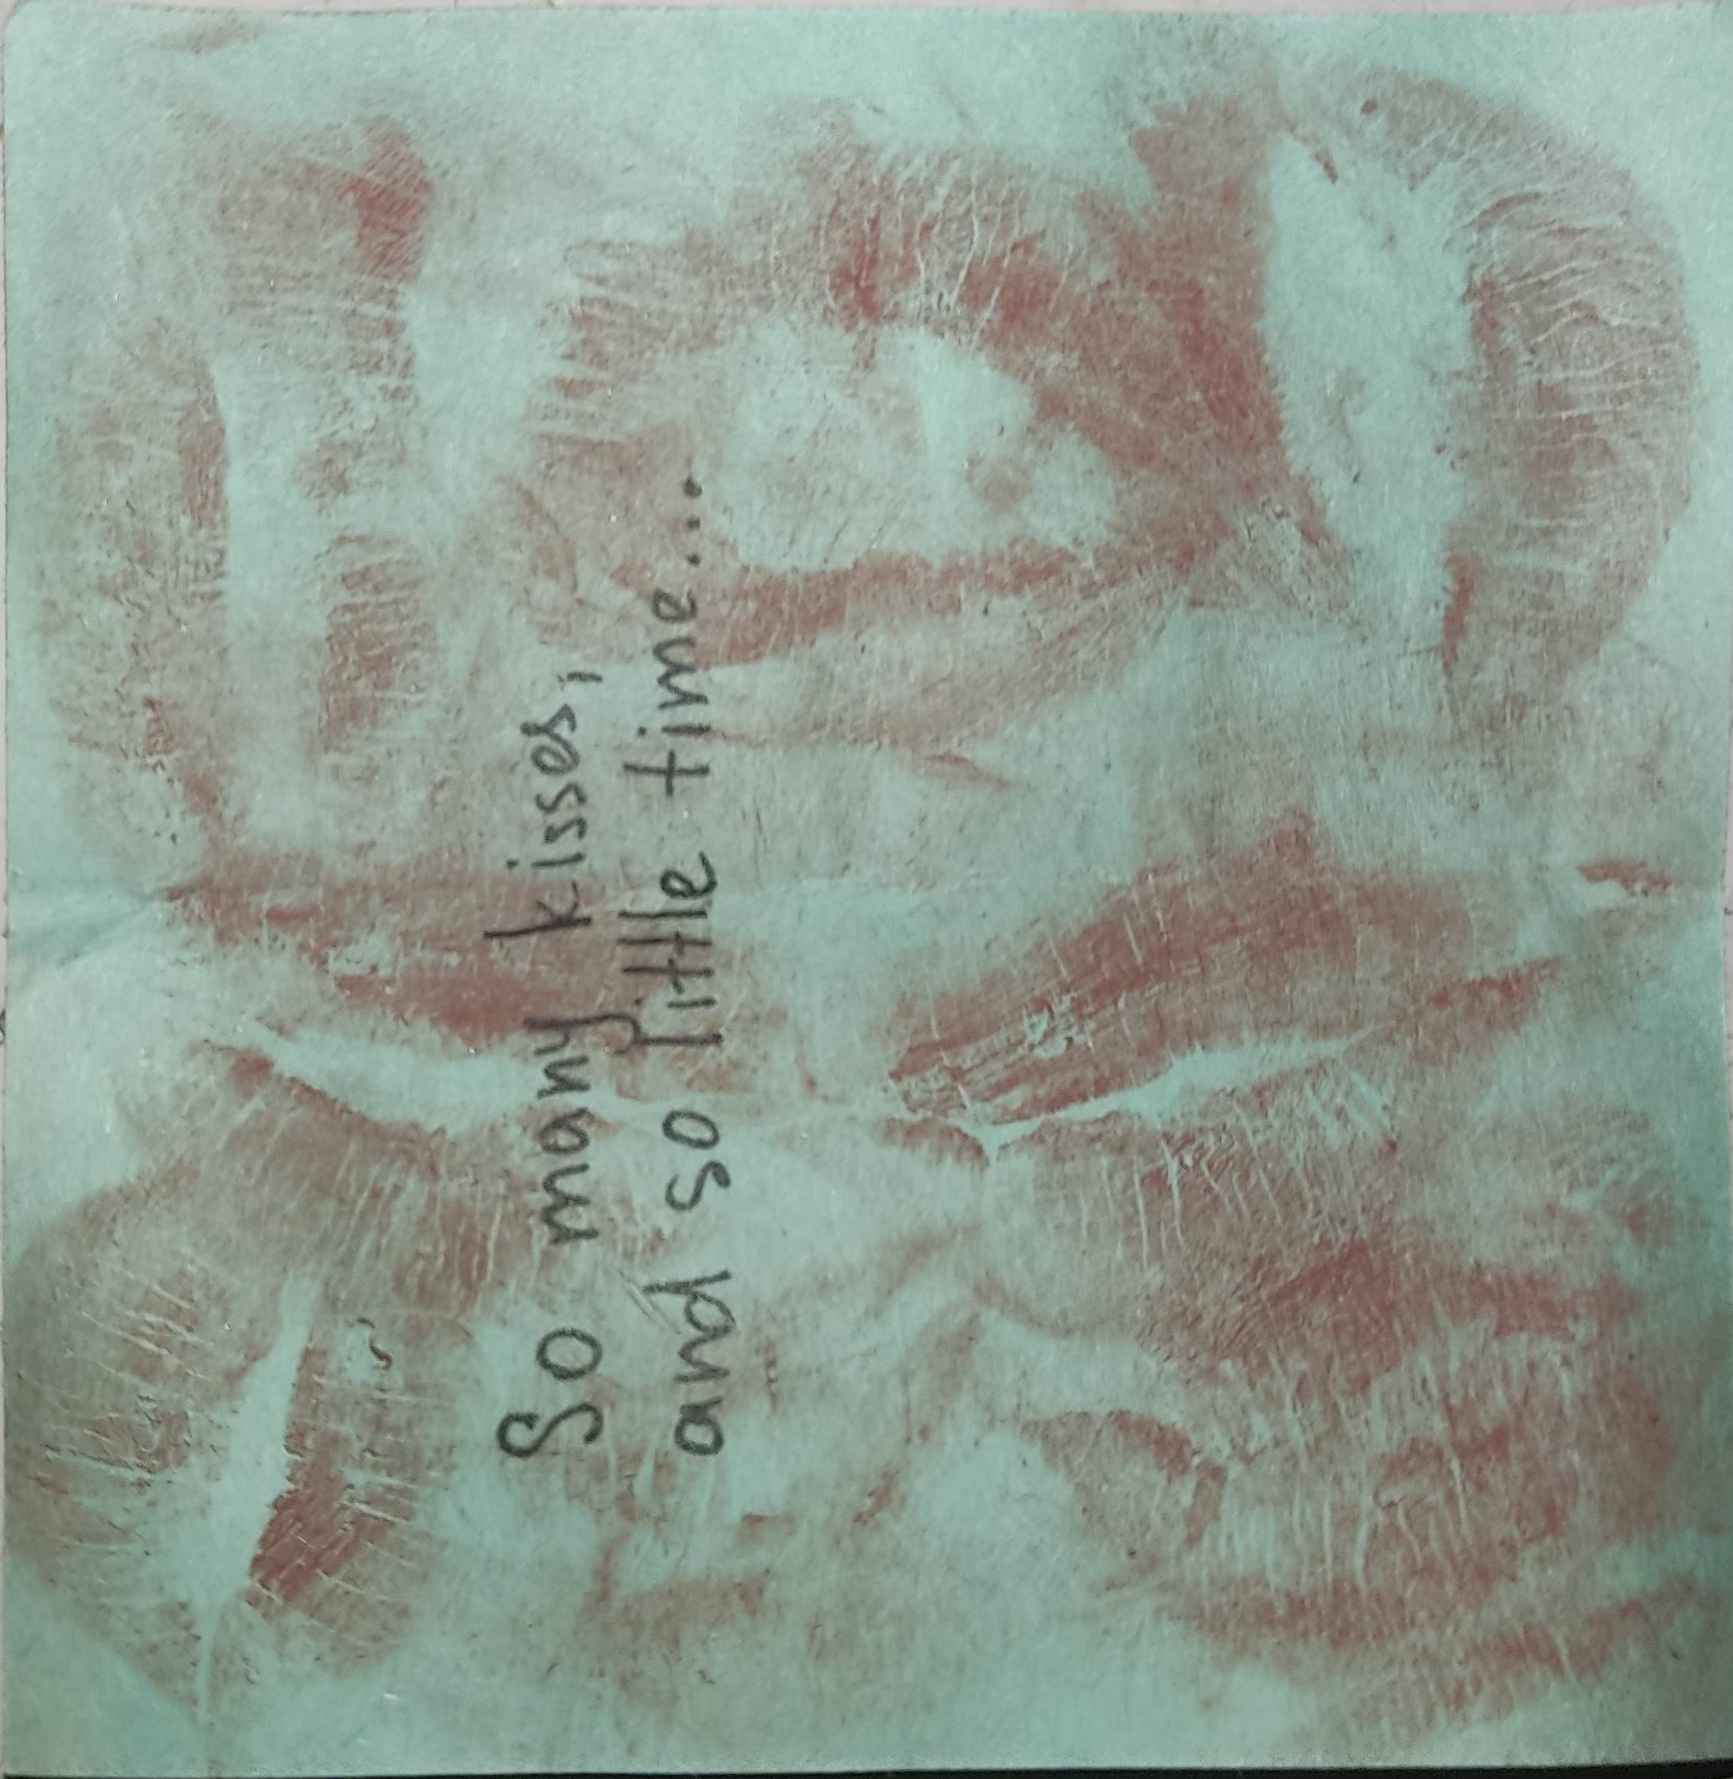 So many kisses,
and so little time...